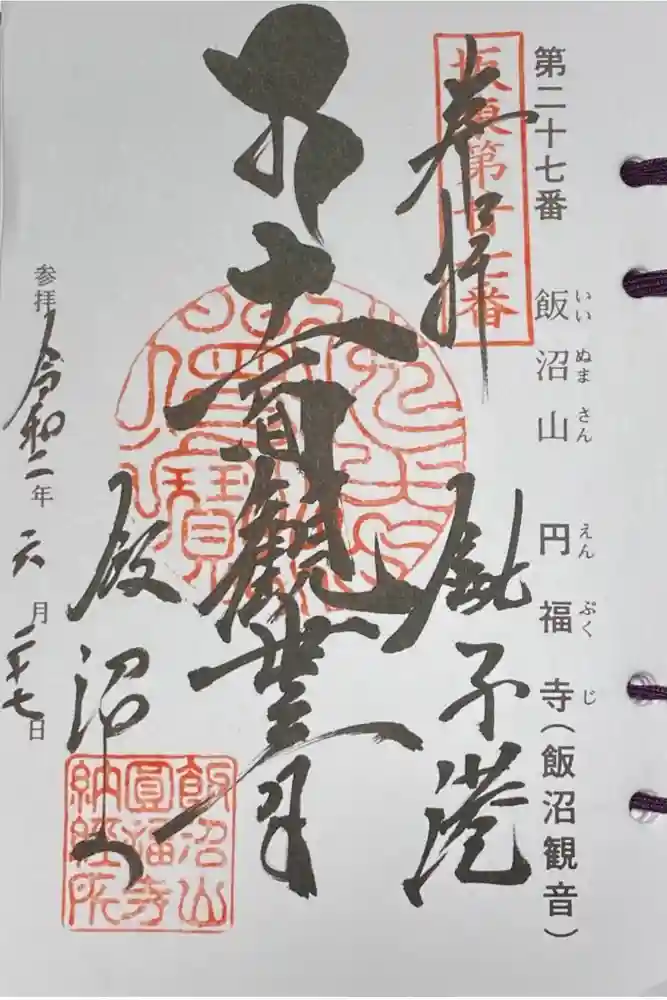 第二十七番 飯沼山 円福寺(飯沼観音)
いい ぬま さん えん ぷく じ
坂東第廿七番
奉拝
銚子港
十一面觀世音
飯沼山
飯沼山
圓福寺
納經所
参拝 令和二年 六月二十七日